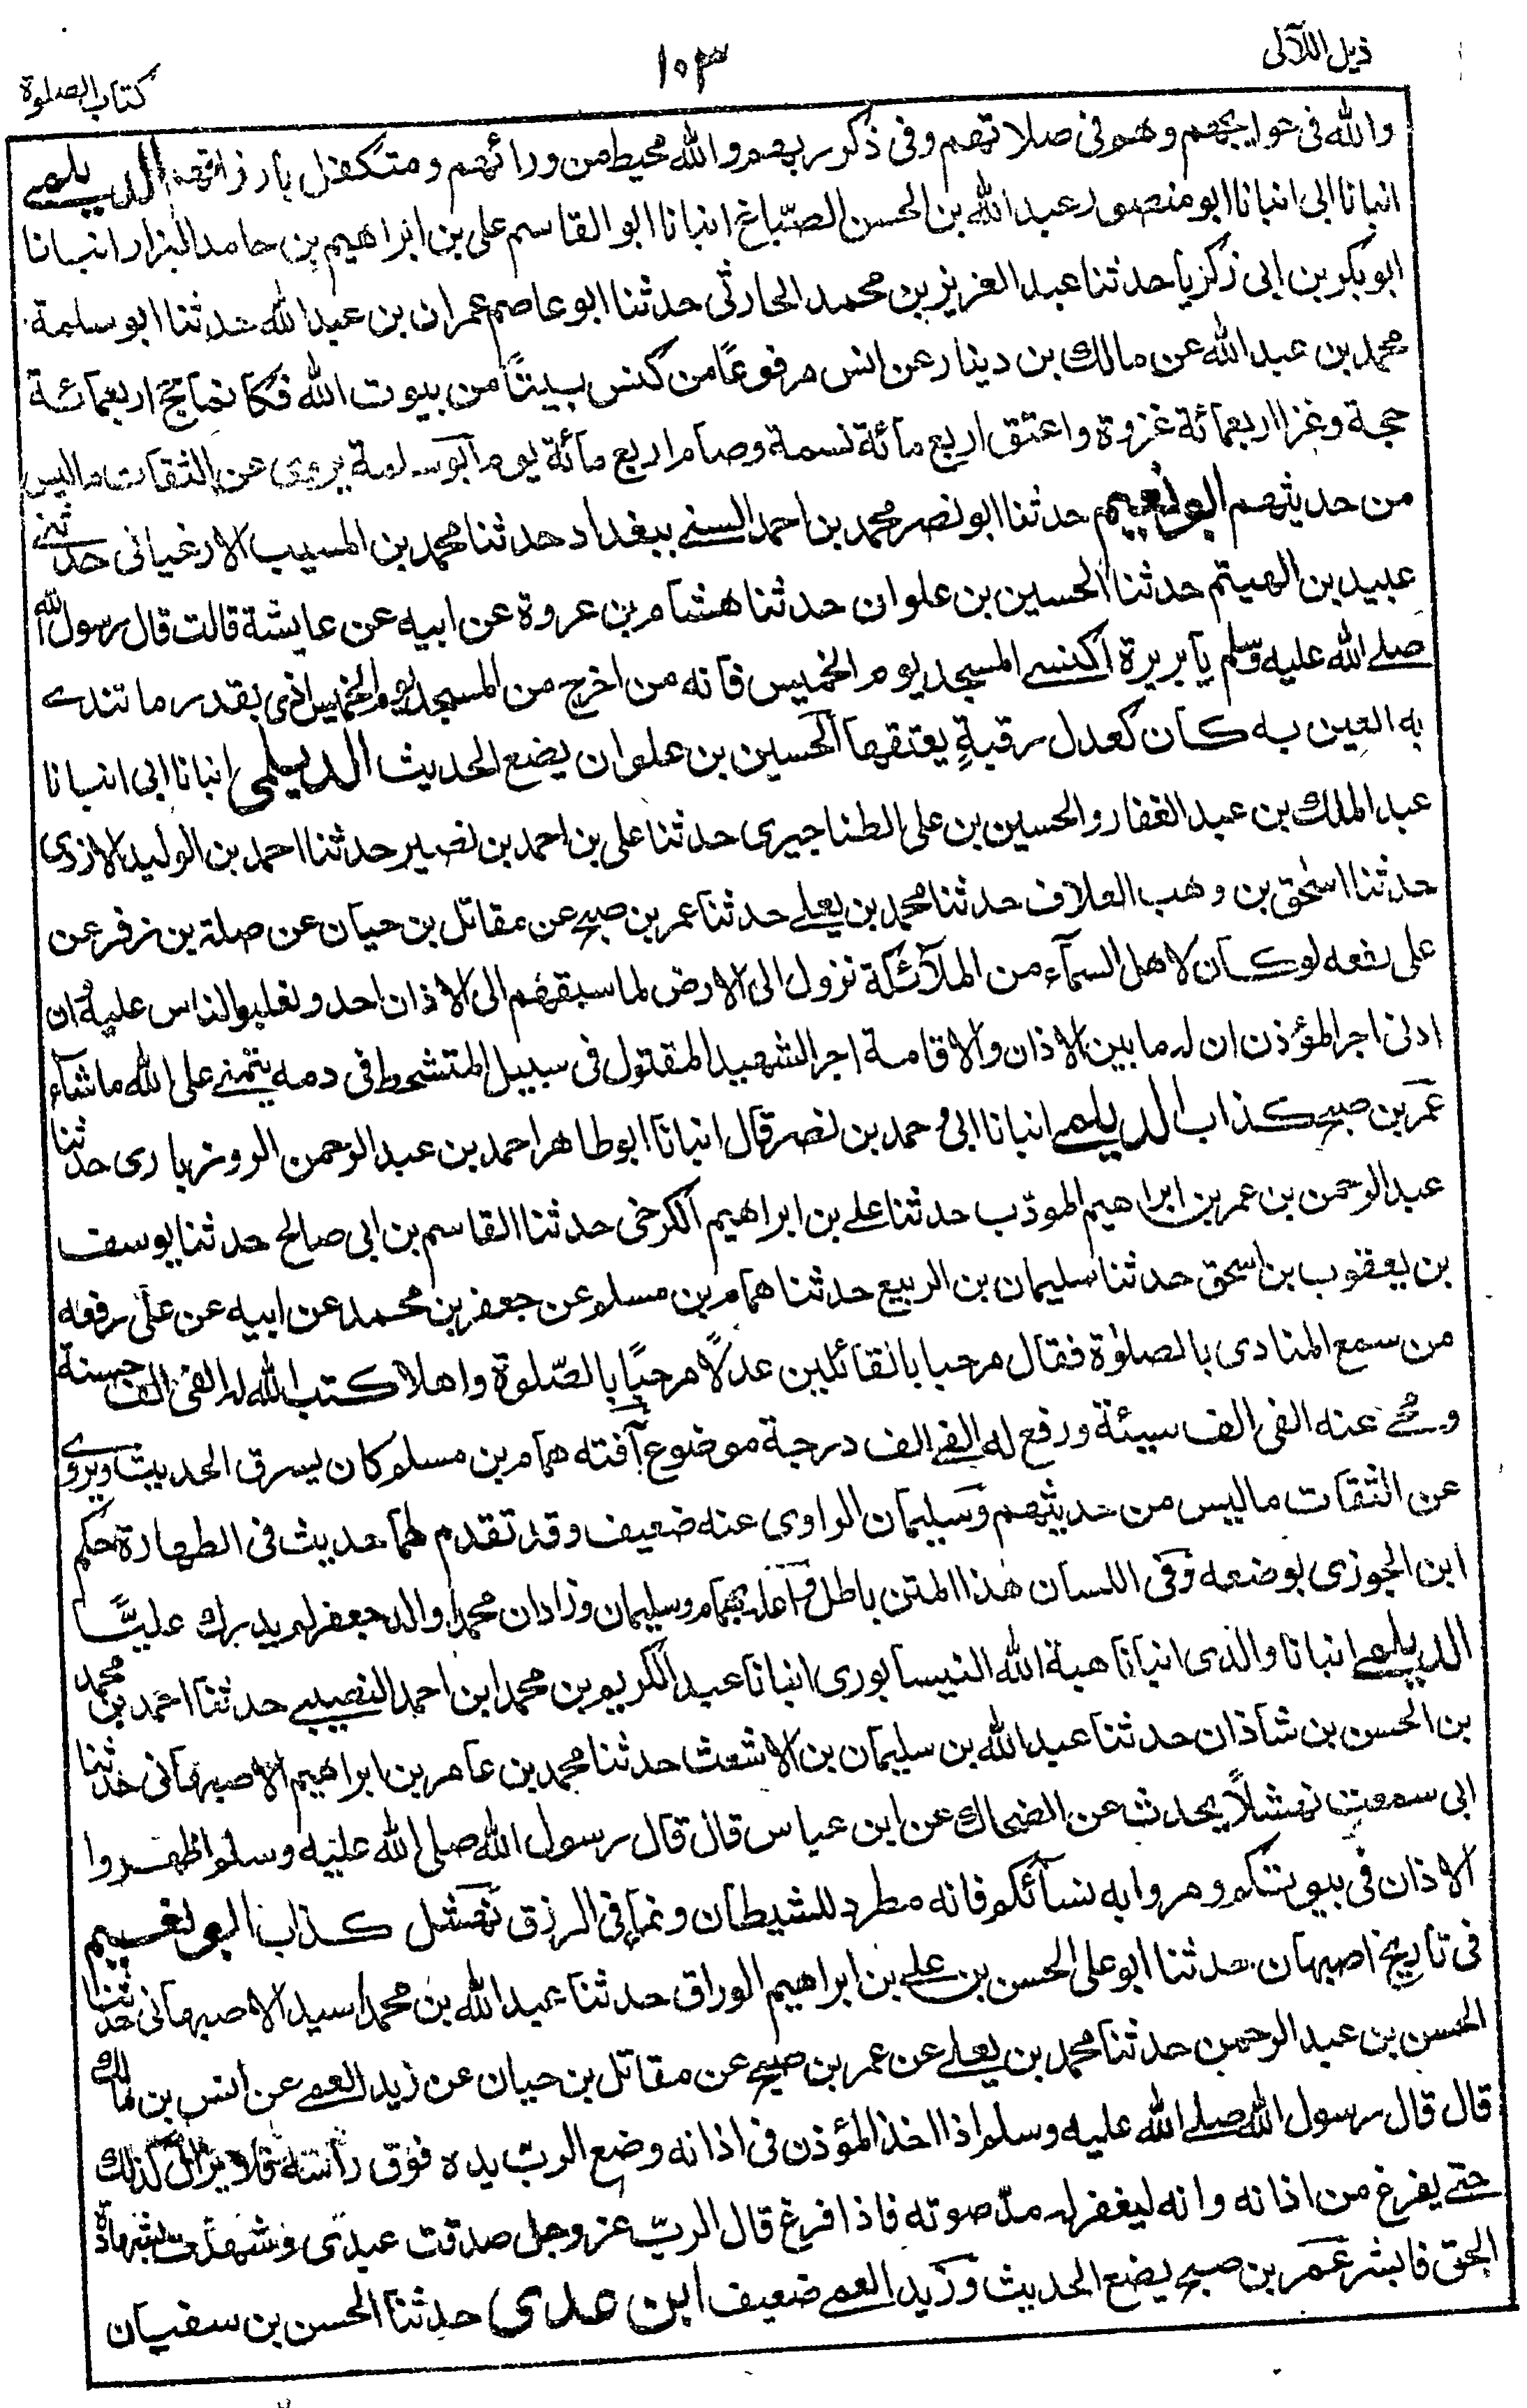 ذيل اللآلى
١٠٣
كتاب الصلوة
والله فى حوايجهم وهم فى صلاتهم وفى ذكر ربهم والله محيط من ورائهم ومتكفل بارزاقهم الديلمى
انبانا ابى انبانا ابو منصور عبدالله بن الحسن الصبّاغ انبانا ابو القاسم على بن ابراهيم بن حامد البزار انبانا
ابوبكر بن ابى زكريا حدثنا عبد العزيز بن محمد الحارثى حدثنا ابو عاصم عمران بن عبدالله حدثنا ابو سلمة
محمد بن عبد الله عن مالك بن دينار عن انس مرفوعًا من كنس بيتًا من بيوت الله فكانما حج اربعمائة
حجة وغزا اربعمائة غزوة واعتق اربع مائة نسمة وصام اربع مائة يوم ابو سلمة يروى عن الثقات ماليس
من حديثهم ابو نعيم حدثنا ابو نصر محمد بن احمد السنى ببغداد حدثنا محمد بن المسيب الارغيانى حدثنى
عبيد بن الهيثم حدثنا الحسين بن علوان حدثنا هشام بن عروة عن ابيه عن عايشة قالت قال رسول الله
صلى الله عليه وسلم يا بريرة اكنسى المسجد يوم الخميس فانه من اخرج من المسجد يوم الخميس اذى بقدر ما تندى
به العين به كان كعدل رقبةٍ يعتقها الحسين بن علوان يضع الحديث الديلمى انبانا ابى انبانا
عبد الملك بن عبد الغفار والحسين بن على الطناجيرى حدثنا على بن احمد بن نصير حدثنا احمد بن الوليد الازدى
حدثنا اسحق بن وهب العلاف حدثنا محمد بن يعلى حدثنا عمر بن صبح عن مقاتل بن حيان عن صلة بن زفر عن
على رفعه لو كان لاهل السمآء من الملآئكة نزول الى الارض لما سبقهم الى الاذان احد ولغلبوا الناس عليه وان
ادنى اجر المؤذن ان له مابين الاذان والاقامة اجر الشهيد المقتول فى سبيل المتشحط فى دمه يتمنى على الله ماشآء
عمر بن صبح كذاب الديلمى انبانا ابى محمد بن نصر قال انبانا ابو طاهر احمد بن عبد الرحمن الروذبارى حدثنا
عبد الرحمن بن عمر بن ابراهيم المودّب حدثنا على بن ابراهيم الكرخى حدثنا القاسم بن ابى صالح حدثنا يوسف
بن يعقوب بن اسحق حدثنا سليمان بن الربيع حدثنا همام بن مسلم عن جعفر بن محمد عن ابيه عن على رفعه
من سمع المنادى بالصلوٰة فقال مرحبا بالقائلين عدلًا مرحبًا بالصّلوة واهلا كتب الله له الفى الف حسنة
ومحى عنه الفى الف سيئة ورفع له الفى الف درجة موضوع آفته همام بن مسلم كان يسرق الحديث ويروى
عن الثقات ماليس من حديثهم وسليمان الراوى عنه ضعيف وقد تقدم لهما حديث فى الطهارة حكم
ابن الجوزى بوضعه وفى اللسان هذا المتن باطل همام وسليمان وزادان محمدا والد جعفر لم يدرك عليًّا
الديلمى انبانا والدى انبانا هبة الله النيسابورى انبانا عبد الكريم بن محمد ابن احمد النصيبى حدثنا احمد بن محمد
بن الحسن بن شاذان حدثنا عبد الله بن سليمان بن الاشعث حدثنا محمد بن عامر بن ابراهيم الاصبهانى حدثنا
ابى سمعت نهشلًا يحدث عن الضحاك عن ابن عباس قال قال رسول الله صلى الله عليه وسلم اظهروا
الاذان فى بيوتكم ومروا به نسآئكم فانه مطرد للشيطان ونمآء فى الرزق نهشل كذاب ابو نعيم
فى تاريخ اصبهان حدثنا ابو على الحسن بن على بن ابراهيم الوراق حدثنا عبد الله بن محمد اسيد الاصبهانى حدثنا
الحسن بن عبد الرحمن حدثنا محمد بن يعلى عن عمر بن صبح عن مقاتل بن حيان عن زيد العمى عن انس بن مالك
قال قال رسول الله صلى الله عليه وسلم اذا اخذ المؤذن فى اذانه وضع الربّ يده فوق رأسه فلا يزال كذلك
حتى يفرغ من اذانه وانه ليغفر له مدّ صوته فاذا فرغ قال الربّ عز وجل صدقت عبدى وشهدت بشهادة
الحق فابشر عمر بن صبح يضع الحديث وزيد العمى ضعيف ابن عدى حدثنا الحسن بن سفيان